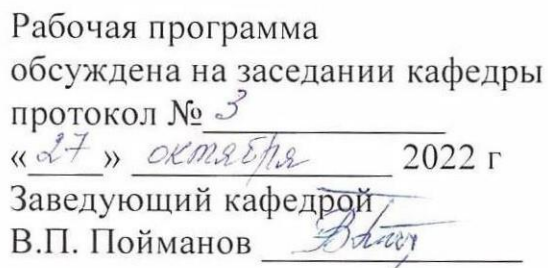 Рабочая программа
обсуждена на заседании кафедры
протокол № 3
«27» октября 2022 г
Заведующий кафедрой
В.П. Пойманов